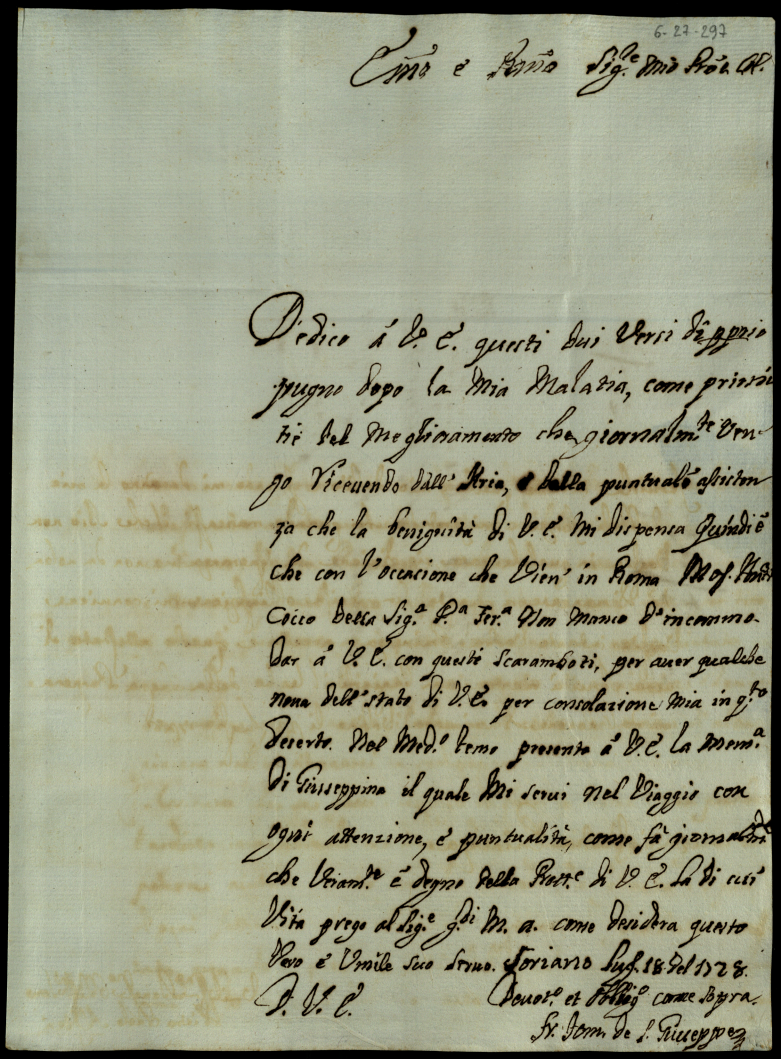 6-27-297
Em̃o e Rm̃o Sig.re Mio Prõn Col.
Dedico á V. E. questi dui Versi di pprio
pugno dopo la Mia Malatia, come primi
tie del Meglioramento che giornalm.te Ven-
go ricevendo dall' Aria, e della puntuale assisten
za che la benignità di V. E. Mi dispensa Quindi é
che con l'occasione che Vien' in Roma
Cocco della Sig.a D.a Ter.a Non Manco d'incommo-
dar á V. E. con questi scaramboti, per aver qualche
nova dell' stato di V. E. per consolazione Mia in q.to
deserto. Nel Med.o temo presento á V. E. la Mem.a
Di Giuseppino il quale Mi servi nel Viaggio con
ogni attenzione, é puntualità, come fà giornalm.te
che Veram.te é degno della Prott.e di V. E. La di cui
Vita prego al Sig.e g.di M. a. come desidera questo
Vero é Umile suo servo. Soriano Lug. 18. del 1728.
D. V. E. Devot.o et Obblig.o come sopra.
fr. Tom. de S. Giuseppe